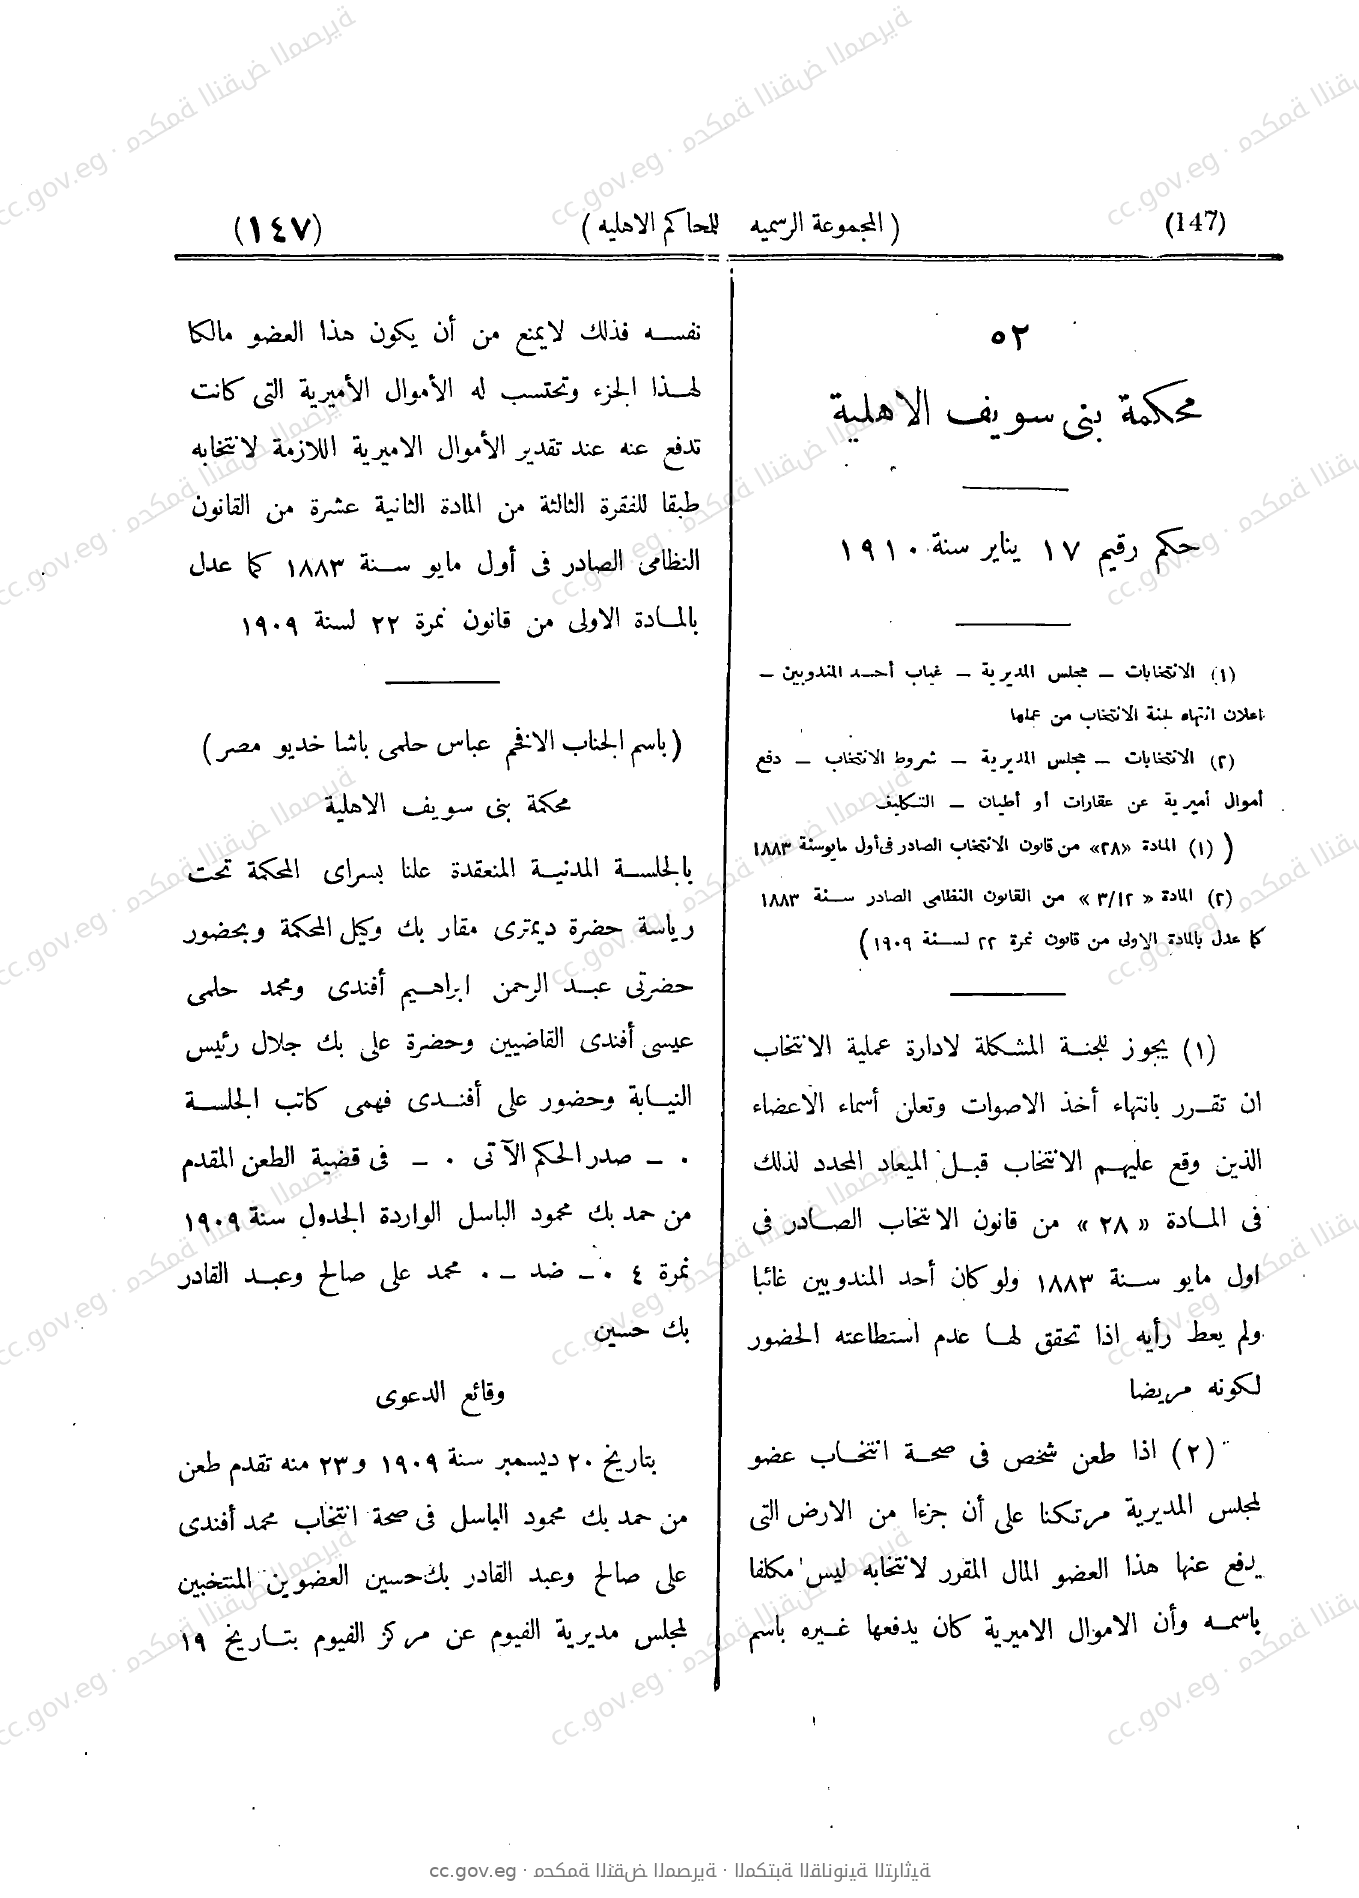 (147) ( المجموعة الرسميه للمحاكم الاهليه ) (١٤٧)
٥٢
محكمة بنى سويف الاهلية
حكم رقيم ١٧ يناير سنة ١٩١٠
(١) الانتخابات – مجلس المديرية – غياب أحد المندوبين –
اعلان انتهاء لجنة الانتخاب من عملها
(٢) الانتخابات – مجلس المديرية – شروط الانتخاب – دفع
أموال أميرية عن عقارات أو أطيان – التكليف
( (١) المادة «٢٨» من قانون الانتخاب الصادر فى أول مايوسنة ١٨٨٣
(٢) المادة « ٣/١٢ » من القانون النظامى الصادر سنة ١٨٨٣
كما عدل بالمادة الاولى من قانون نمرة ٢٢ لسنة ١٩٠٩ )
(١) يجوز للجنة المشكلة لادارة عملية الانتخاب
ان تقرر بانتهاء أخذ الاصوات وتعلن أسماء الاعضاء
الذين وقع عليهم الانتخاب قبل الميعاد المحدد لذلك
فى المادة « ٢٨ » من قانون الانتخاب الصادر فى
اول مايو سنة ١٨٨٣ ولو كان أحد المندوبين غائبا
ولم يعط رأيه اذا تحقق لها عدم استطاعته الحضور
لكونه مريضا
(٢) اذا طعن شخص فى صحة انتخاب عضو
لمجلس المديرية مرتكنا على أن جزءا من الارض التى
يدفع عنها هذا العضو المال المقرر لانتخابه ليس مكلفا
باسمه وأن الاموال الاميرية كان يدفعها غيره باسم
نفسه فذلك لايمنع من أن يكون هذا العضو مالكا
لهذا الجزء وتحتسب له الأموال الأميرية التى كانت
تدفع عنه عند تقدير الأموال الاميرية اللازمة لانتخابه
طبقا للفقرة الثالثة من المادة الثانية عشرة من القانون
النظامى الصادر فى أول مايو سنة ١٨٨٣ كما عدل
بالمادة الاولى من قانون نمرة ٢٢ لسنة ١٩٠٩
(باسم الجناب الافخم عباس حلمى باشا خديو مصر)
محكمة بنى سويف الاهلية
بالجلسة المدنية المنعقدة علنا بسراى المحكمة تحت
رياسة حضرة ديمترى مقار بك وكيل المحكمة وبحضور
حضرتى عبد الرحمن ابراهيم أفندى ومحمد حلمى
عيسى أفندى القاضيين وحضرة على بك جلال رئيس
النيابة وحضور على أفندى فهمى كاتب الجلسة
٠ – صدر الحكم الآتى ٠ – فى قضية الطعن المقدم
من حمد بك محمود الباسل الواردة الجدول سنة ١٩٠٩
نمرة ٤ ٠ – ضد – ٠ محمد على صالح وعبد القادر
بك حسين
وقائع الدعوى
بتاريخ ٢٠ ديسمبر سنة ١٩٠٩ و٢٣ منه تقدم طعن
من حمد بك محمود الباسل فى صحة انتخاب محمد أفندى
على صالح وعبد القادر بك حسين العضوين المنتخبين
لمجلس مديرية الفيوم عن مركز الفيوم بتاريخ ١٩
cc.gov.eg · محكمة النقض المصرية · المكتبة القانونية التراثية